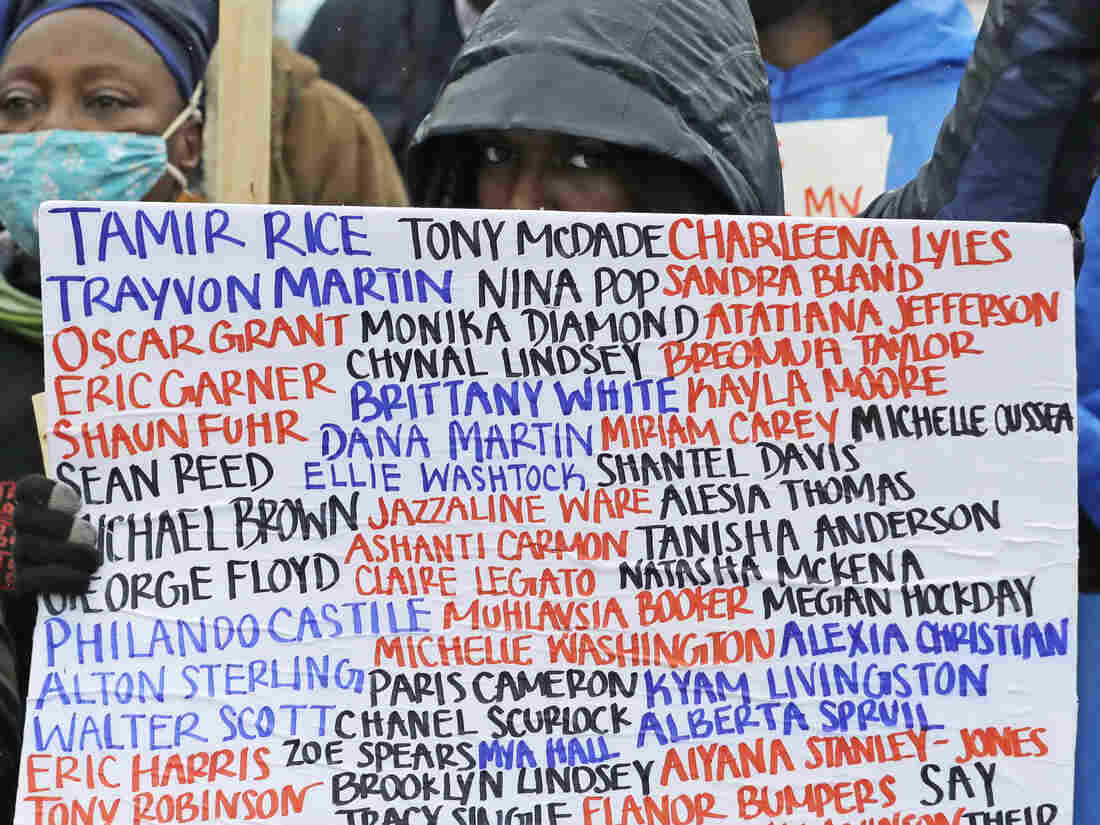 TAMIR RICE TONY MCDADE CHARLEENA LYLES
TRAYVON MARTIN NINA POP SANDRA BLAND
OSCAR GRANT MONIKA DIAMOND ATATIANA JEFFERSON
CHYNAL LINDSEY BREONNA TAYLOR
ERIC GARNER BRITTANY WHITE KAYLA MOORE
SHAUN FUHR DANA MARTIN MIRIAM CAREY MICHELLE CUSSEA
SEAN REED ELLIE WASHTOCK SHANTEL DAVIS
MICHAEL BROWN JAZZALINE WARE ALESIA THOMAS
ASHANTI CARMON TANISHA ANDERSON
GEORGE FLOYD CLAIRE LEGATO NATASHA MCKENA
PHILANDO CASTILE MUHLAYSIA BOOKER MEGAN HOCKDAY
MICHELLE WASHINGTON ALEXIA CHRISTIAN
ALTON STERLING PARIS CAMERON KYAM LIVINGSTON
WALTER SCOTT CHANEL SCURLOCK ALBERTA SPRUIL
ERIC HARRIS ZOE SPEARS MYA HALL AIYANA STANLEY-JONES
TONY ROBINSON BROOKLYN LINDSEY ELANOR BUMPERS SAY
TRACY SINGLE THEIR
MY